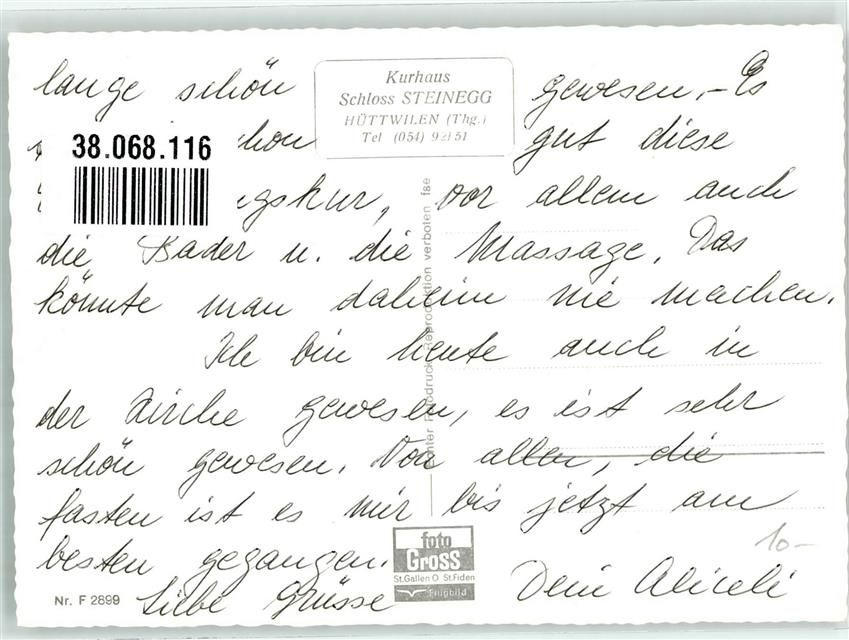 Kurhaus
Schloss STEINEGG
HÜTTWILEN (Thg.)
Tel (054) 9 21 51
lange schön gewesen. – Es
schon gut diese
gskur, vor allem auch
38.068.116
die Bäder u. die Massage. Das
könnte man daheim nie machen.
Ich bin heute auch in
der Kirche gewesen, es ist sehr
schön gewesen. Von allen, die
fasten ist es mir bis jetzt am
besten gegangen.
Liebe Grüsse Dein Aliceli
Reproduktion verboten
foto
GROSS
St.Gallen O St.Fiden
Flugbild
Nr. F 2899
10-